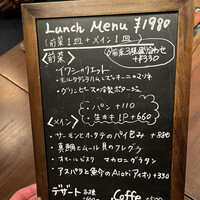 Lunch Menu ¥1980
(前菜1皿+メイン1皿)
<前菜> 前菜3種盛合わせ +¥330
・イワシのリエット
・モルタデッラハムとズッキーニの
・グリンピースの冷製ポタージュ
・パン +110
・生カキ1P +660
<メイン>
・サーモンとホタテのパイ包み +880
・真鯛とムール貝のフレグラ
・オマールビスク マカロニグラタン
・アスパラと魚介のAioriアイオリ +330
デザート Coffe